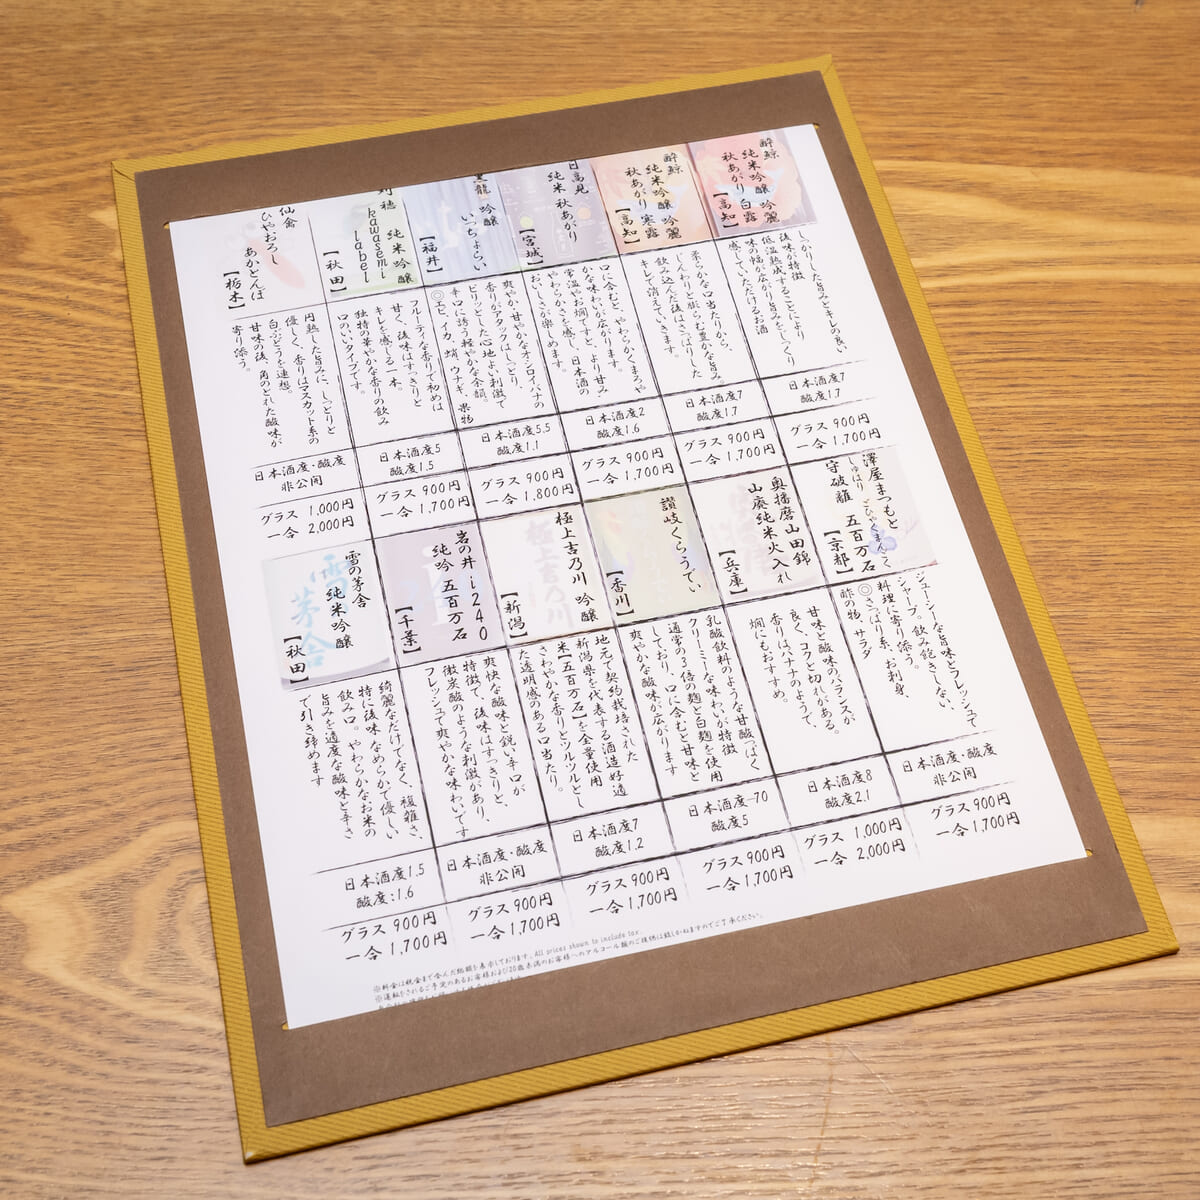 酔鯨
純米吟醸 吟麗
秋あがり 白露
【高知】
しっかりした旨みとキレの良い
後味が特徴
低温熟成することにより
味の幅が広がり旨みをじっくり
感じていただけるお酒
日本酒度7
酸度1.7
グラス 900円
一合 1,700円
酔鯨
純米吟醸 吟麗
秋あがり 寒露
【高知】
柔らかな口当たりから、
じんわりと膨らむ豊かな旨み。
飲み込んだ後はさっぱりした
キレで消えていきます。
日本酒度7
酸度1.7
グラス 900円
一合 1,700円
日高見
純米 秋あがり
【宮城】
口に含むと、やわらかくまろや
かな味わいが広がります。
常温やお燗ですと、より甘み
やわらかさを感じ、日本酒の
おいしさが楽しめます。
日本酒度2
酸度1.6
グラス 900円
一合 1,700円
黒龍 吟醸
いっちょらい
【福井】
爽やか甘やかなオシロイバナの
香りがアタックはしっとり、
ピリッとした心地よい刺激で
辛口に誘う軽やかな余韻。
◎エビ、イカ、蛸、ウナギ、果物
日本酒度5.5
酸度1.1
グラス 900円
一合 1,800円
刈穂 純米吟醸
kawasemi
label
【秋田】
フルーティな香りで初めは
甘く、後味はすっきりと
キレを感じる一本。
独特の華やかな香りの飲み
口のいいタイプです。
日本酒度5
酸度1.5
グラス 900円
一合 1,700円
仙禽
ひやおろし
あかとんぼ
【栃木】
円熟した旨みに、しっとりと
優しく、香りはマスカット系の
白ぶどうを連想。
甘味の後、角のとれた酸味が
寄り添う。
日本酒度・酸度
非公開
グラス 1,000円
一合 2,000円
澤屋まつもと
しゅはり ごひゃくまんごく
守破離 五百万石
【京都】
ジューシーな旨味とフレッシュで
シャープ。飲み飽きしない、
料理に寄り添う。
◎さっぱり系、お刺身、
酢の物、サラダ
日本酒度・酸度
非公開
グラス 900円
一合 1,700円
奥播磨山田錦
山廃純米火入れ
【兵庫】
甘味と酸味のバランスが
良く、コクと切れがある。
香りはバナナのようで、
燗にもおすすめ。
日本酒度8
酸度2.1
グラス 1,000円
一合 2,000円
讃岐くらうでぃ
【香川】
乳酸飲料のような甘酸っぱく
クリーミーな味わいが特徴
通常の3倍の麹と白麹を使用
しており、口に含むと甘味と
爽やかな酸味が広がります
日本酒度-70
酸度5
グラス 900円
一合 1,700円
極上吉乃川 吟醸
【新潟】
地元で契約栽培された
新潟県を代表する酒造好適
米【五百万石】を全量使用
さわやかな香りとツルツルとし
た透明感のある口当たり。
日本酒度7
酸度1.2
グラス 900円
一合 1,700円
岩の井 i240
純吟 五百万石
【千葉】
爽快な酸味と鋭い辛口が
特徴で、後味はすっきりと、
微炭酸のような刺激があり、
フレッシュで爽やかな味わいです
日本酒度・酸度
非公開
グラス 900円
一合 1,700円
雪の茅舎
純米吟醸
【秋田】
綺麗なだけでなく、複雑さ、
特に後味なめらかで優しい
飲み口。やわらかなお米の
旨みを適度な酸味と辛さ
で引き締めます
日本酒度1.5
酸度:1.6
グラス 900円
一合 1,700円
※料金は税金まで含んだ総額を表示しております。All prices shown to include tax.
※運転をされるご予定のあるお客様および20歳未満のお客様へのアルコール類のご提供は致しかねますのでご了承ください。